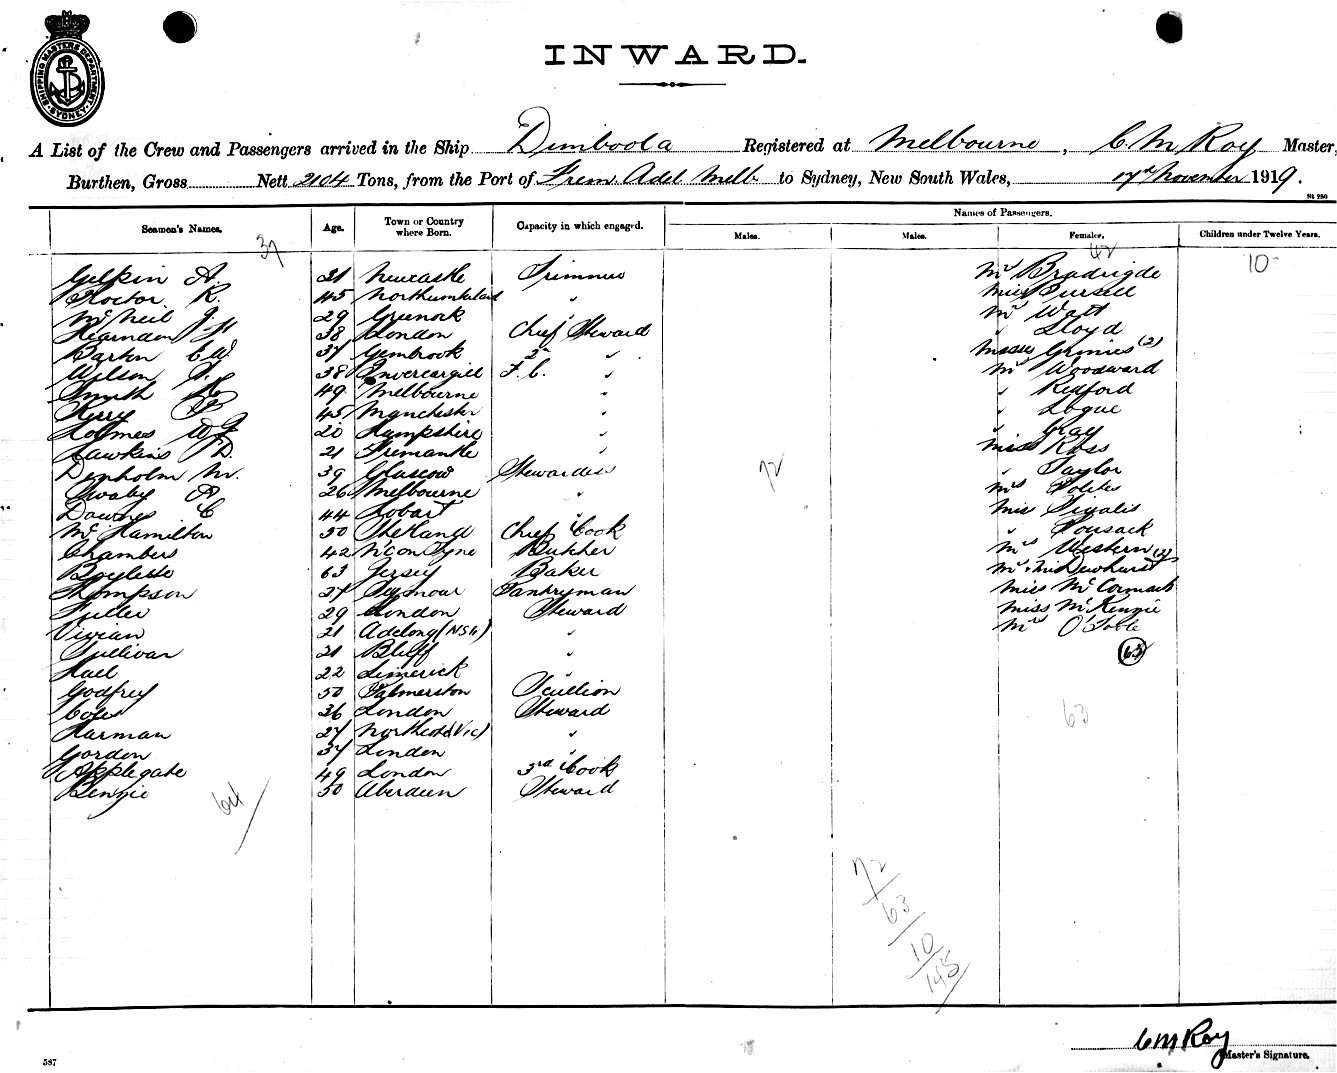 SHIPPING MASTERS DEPARTMENT SYDNEY
INWARD.
A List of the Crew and Passengers arrived in the Ship Dimboola Registered at Melbourne, C.M. Roy Master,
Burthen, Gross Nett 2104 Tons, from the Port of Frem. Adel Melb to Sydney, New South Wales, 17th November 1919.
St 250
Seamen's Names. Age. Town or Country where Born. Capacity in which engaged. Names of Passengers.
Males. Males. Females. Children under Twelve Years.
37 42 10
Gilpin A. 21 Newcastle Trimmer Mrs Bradrigde
R. 45 Northumberland " Miss Pursell
McNeil J. 29 Greenock " Mrs Watt
Hearnden 38 London Chief Steward " Lloyd
Barkn C W 37 Gembrook 2nd " Misses Grimes (2)
Wilson 38 Invercargill F.C. " Mrs Woodward
Smith 49 Melbourne " " Redford
Kerry 45 Manchester " " Logue
Holmes W J 20 Hampshire " " Gray
Hawkins D. 21 Fremantle " Miss Ross
Denholm M. 39 Glascow Stewardess " Taylor
Swaby A 26 Melbourne " Mrs Polites
Downes C 44 Hobart " Miss
McHamilton 50 Shetland Chief Cook "
Chambers 42 N'Con Tyne Butcher Mrs Western
63 Jersey Baker Mrs & Miss Dewhurst (2)
Thompson 27 Seymour Pantryman Miss McCormack
Fuller 29 London Steward Miss McKenzie
Vivian 21 Adelong (NSW) " Mrs O'Toole
Sullivan 21 Bluff " 63
Hall 22 Limerick "
Godfrey 50 Palmerston Scullion
Coles 36 London Steward 63
Harman 27 Northcote (Vic) "
Gordon 37 London "
Applegate 49 London 3rd Cook
Benzie 50 Aberdeen Steward
64
72
72
63
10
145
C M Roy
Master's Signature.
587